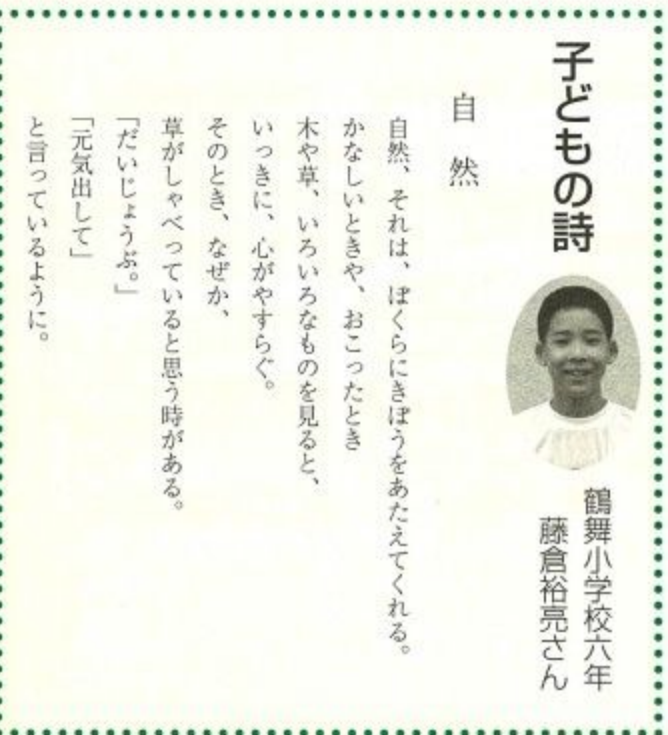 子どもの詩
鶴舞小学校六年
藤倉裕亮さん
自然
自然、それは、ぼくらにきぼうをあたえてくれる。
かなしいときや、おこったとき
木や草、いろいろなものを見ると、
いっきに、心がやすらぐ。
そのとき、なぜか、
草がしゃべっていると思う時がある。
「だいじょうぶ。」
「元気出して」
と言っているように。